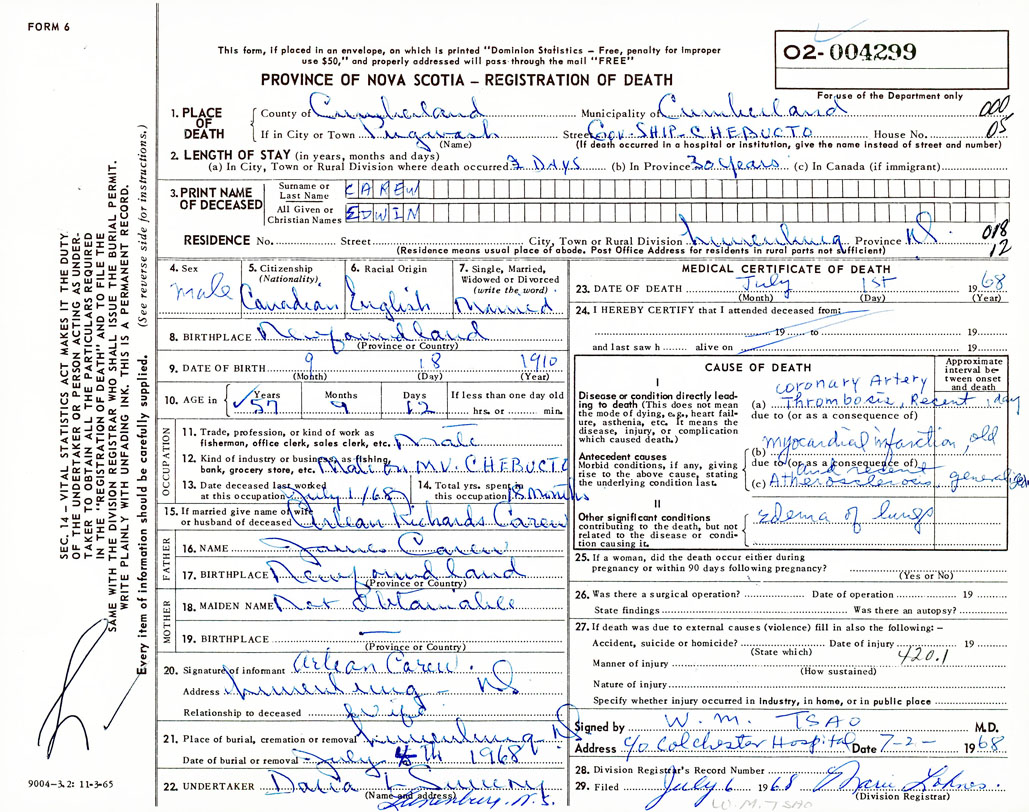 FORM 6
This form, if placed in an envelope, on which is printed "Dominion Statistics – Free, penalty for improper
use $50," and properly addressed will pass through the mail "FREE"
PROVINCE OF NOVA SCOTIA – REGISTRATION OF DEATH
02-004299
For use of the Department only
1. PLACE OF DEATH
County of Cumberland Municipality of Cumberland 000
If in City or Town Pugwash Street Gov. SHIP-CHEBUCTO House No. 05
(Name) (If death occurred in a hospital or institution, give the name instead of street and number)
2. LENGTH OF STAY (in years, months and days)
(a) In City, Town or Rural Division where death occurred 2 DAYS (b) In Province 30 Years (c) In Canada (if immigrant)
3. PRINT NAME OF DECEASED
Surname or Last Name CAREW
All Given or Christian Names EDWIN
RESIDENCE No. Street City, Town or Rural Division Lunenburg Province NS 018 12
(Residence means usual place of abode. Post Office Address for residents in rural parts not sufficient)
4. Sex Male
5. Citizenship (Nationality) Canadian
6. Racial Origin English
7. Single, Married, Widowed or Divorced (write the word) Married
8. BIRTHPLACE Newfoundland
(Province or Country)
9. DATE OF BIRTH 9 18 1910
(Month) (Day) (Year)
10. AGE in Years 57 Months 9 Days 12 If less than one day old hrs. or min.
OCCUPATION
11. Trade, profession, or kind of work as
fisherman, office clerk, sales clerk, etc. Mate
12. Kind of industry or business as fishing,
bank, grocery store, etc. Mate on M.V. CHEBUCTO
13. Date deceased last worked
at this occupation July 1/68
14. Total yrs. spent in
this occupation 8 Months
15. If married give name of wife
or husband of deceased Arlean Richards Carew
FATHER
16. NAME James Carew
17. BIRTHPLACE Newfoundland
(Province or Country)
MOTHER
18. MAIDEN NAME Not Obtainable
19. BIRTHPLACE —
(Province or Country)
20. Signature of informant Arlean Carew.
Address Lunenburg – NS
Relationship to deceased Wife
21. Place of burial, cremation or removal Lunenburg NS
Date of burial or removal July 4th 1968
22. UNDERTAKER Sweeny
(Name and address)
Lunenburg, N.S.
MEDICAL CERTIFICATE OF DEATH
23. DATE OF DEATH July 1st 1968
(Month) (Day) (Year)
24. I HEREBY CERTIFY that I attended deceased from:
19 to 19
and last saw h alive on 19
CAUSE OF DEATH
Approximate interval between onset and death
I
Disease or condition directly leading to death (This does not mean
the mode of dying, e.g., heart failure, asthenia, etc. It means the
disease, injury, or complication
which caused death.)
coronary Artery
(a) Thrombosis, Recent 1 day
due to (or as a consequence of)
Antecedent causes
Morbid conditions, if any, giving
rise to the above cause, stating
the underlying condition last.
(b) myocardial infarction, old
due to (or as a consequence of)
and recent
(c) Atherosclerosis
II
Other significant conditions
contributing to the death, but not
related to the disease or condition causing it.
Edema of lungs
25. If a woman, did the death occur either during
pregnancy or within 90 days following pregnancy?
(Yes or No)
26. Was there a surgical operation? Date of operation 19
State findings Was there an autopsy?
27. If death was due to external causes (violence) fill in also the following: –
Accident, suicide or homicide? Date of injury 19
(State which) 420.1
Manner of injury
(How sustained)
Nature of injury
Specify whether injury occurred in Industry, in home, or in public place
Signed by W. M. TSAO M.D.
Address c/o Colchester Hospital Date 7-2- 1968
28. Division Registrar's Record Number
29. Filed July 6 1968 Marie
(Division Registrar)
W.M. TSAO
SEC. 14 – VITAL STATISTICS ACT MAKES IT THE DUTY
OF THE UNDERTAKER OR PERSON ACTING AS UNDERTAKER TO OBTAIN ALL THE PARTICULARS REQUIRED
IN THE "REGISTRATION OF DEATH" AND TO FILE THE
SAME WITH THE DIVISION REGISTRAR WHO SHALL ISSUE THE BURIAL PERMIT.
WRITE PLAINLY WITH UNFADING INK. THIS IS A PERMANENT RECORD.
Every item of information should be carefully supplied. (See reverse side for instructions.)
9004-3.2: 11-3-65